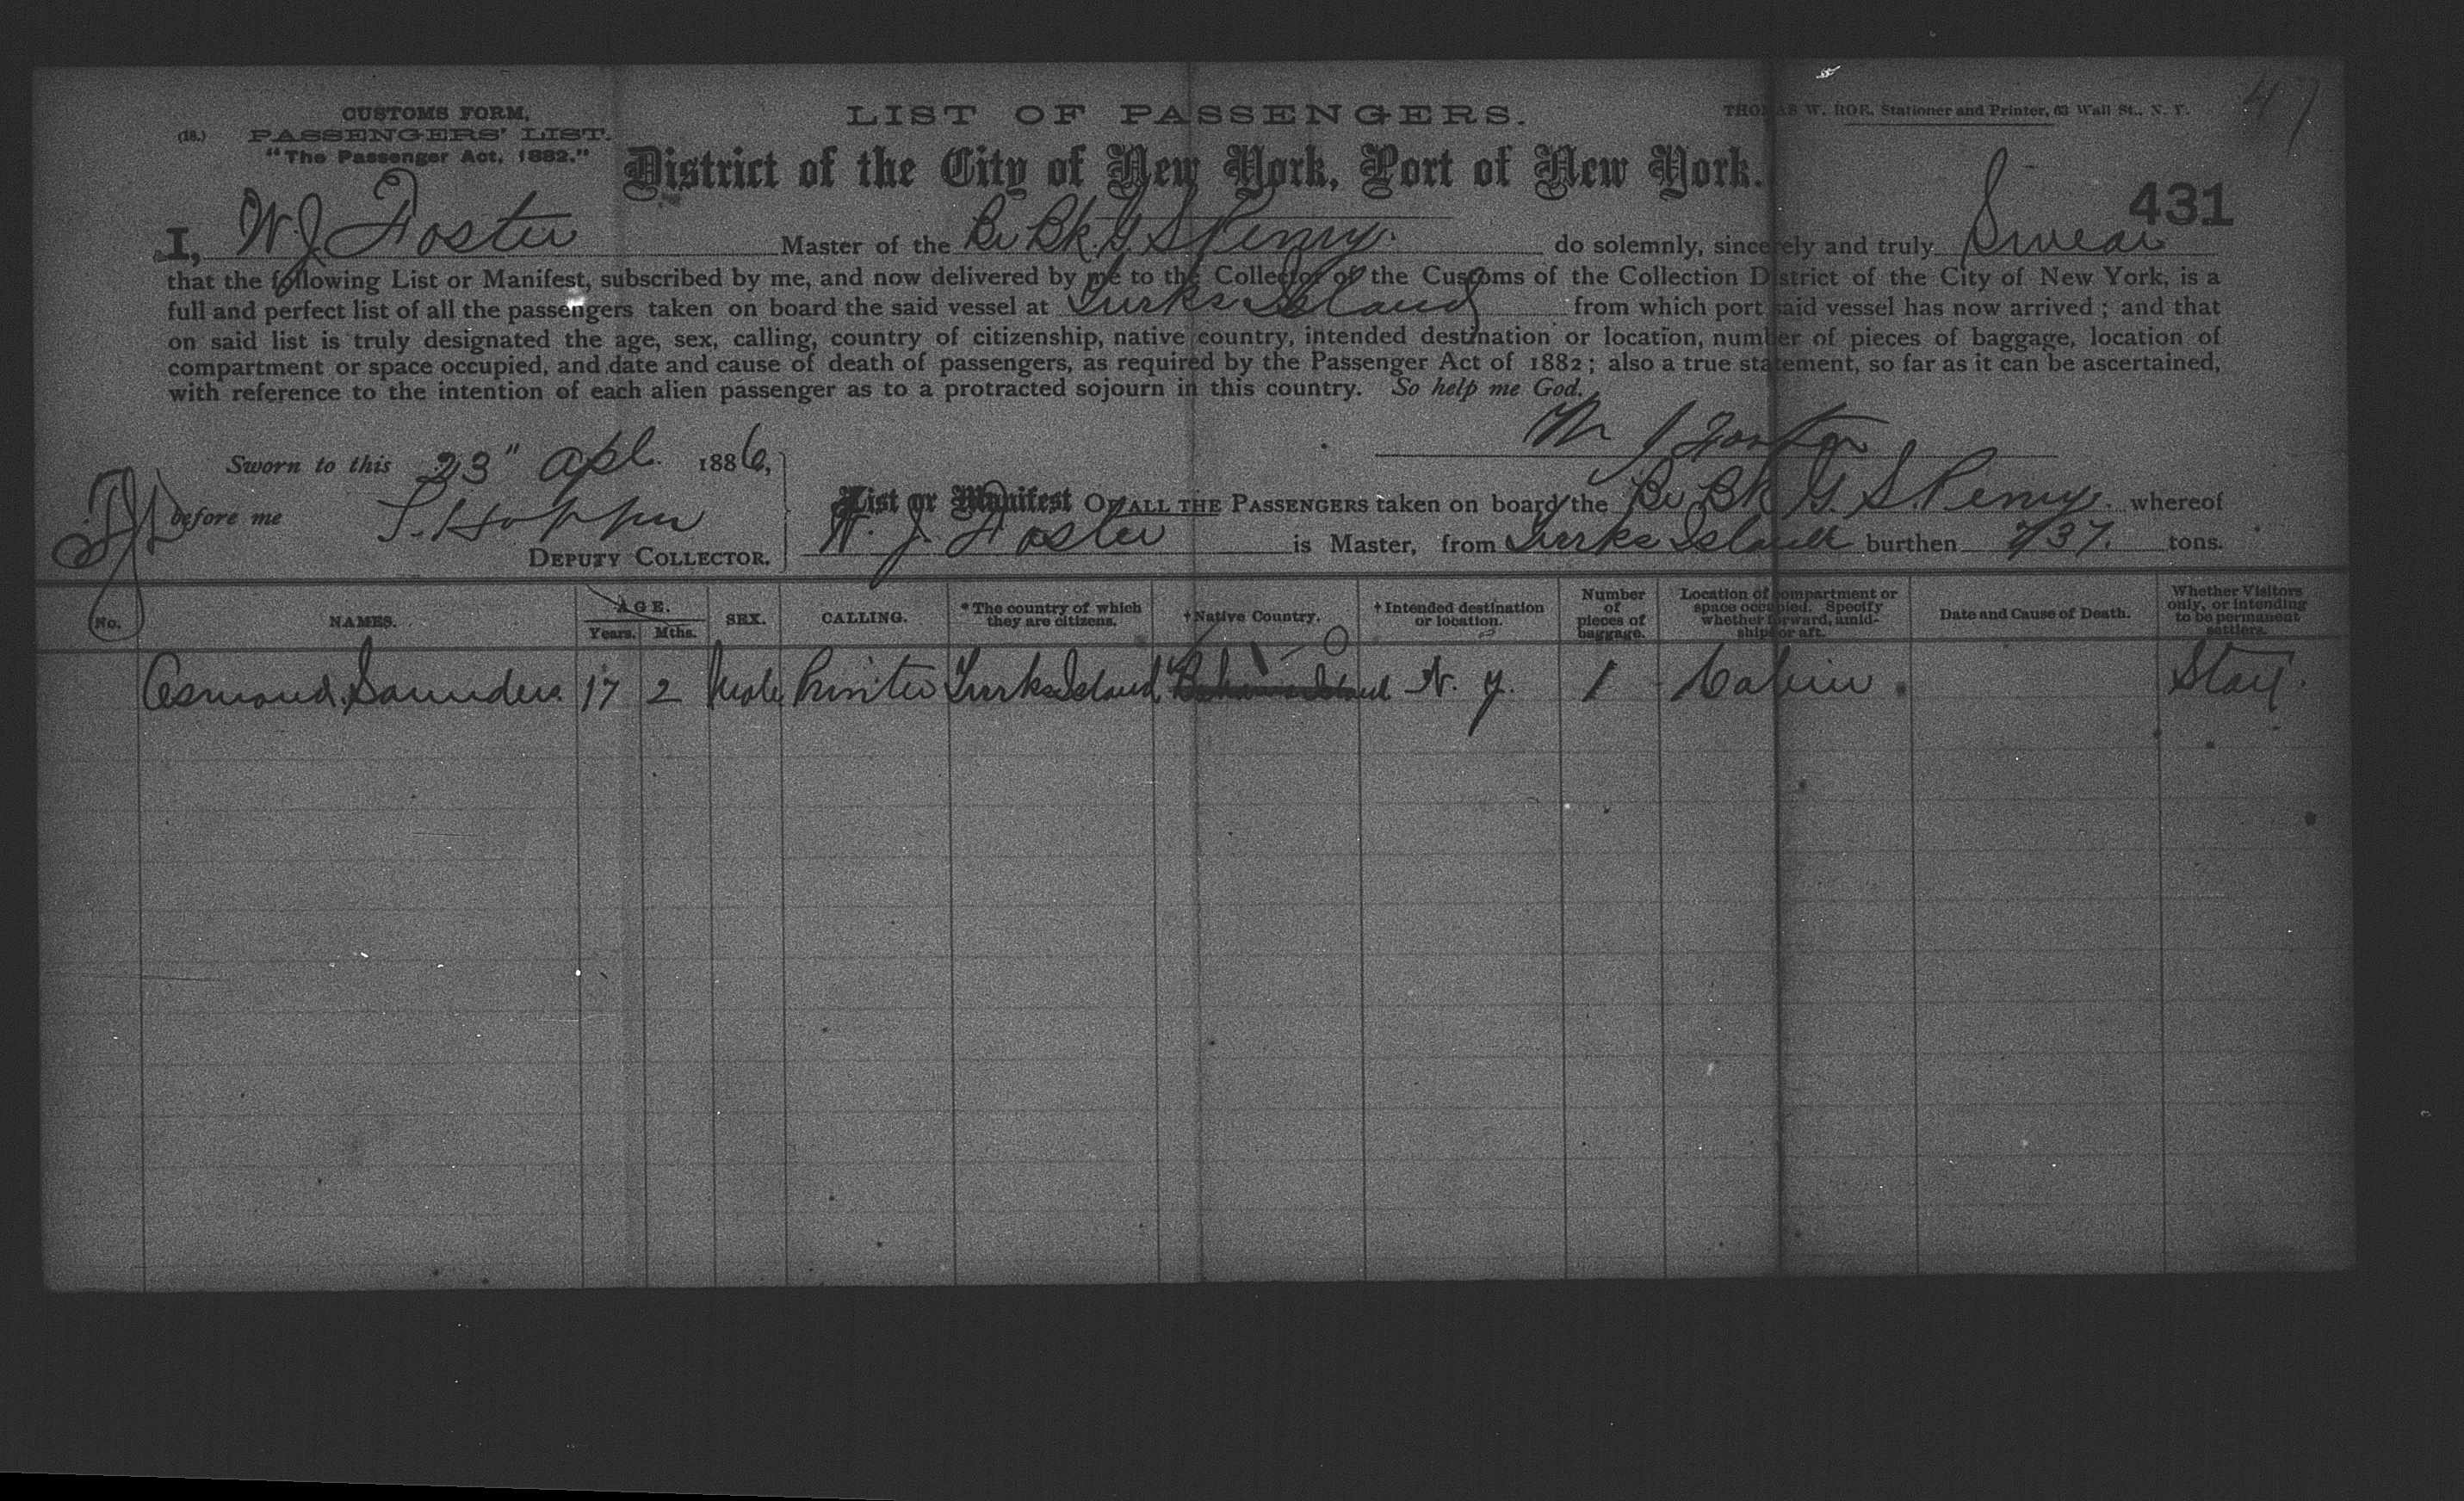 CUSTOMS FORM,
(18.) PASSENGERS' LIST.
"The Passenger Act, 1882."
LIST OF PASSENGERS.
THOMAS W. ROE, Stationer and Printer, 63 Wall St., N. Y.
47
District of the City of New York, Port of New York.
431
I, W. J. Foster Master of the Br Bk G. S. Penry. do solemnly, sincerely and truly Swear
that the following List or Manifest, subscribed by me, and now delivered by me to the Collector of the Customs of the Collection District of the City of New York, is a
full and perfect list of all the passengers taken on board the said vessel at Turks Island from which port said vessel has now arrived ; and that
on said list is truly designated the age, sex, calling, country of citizenship, native country, intended destination or location, number of pieces of baggage, location of
compartment or space occupied, and date and cause of death of passengers, as required by the Passenger Act of 1882 ; also a true statement, so far as it can be ascertained,
with reference to the intention of each alien passenger as to a protracted sojourn in this country. So help me God.
W J Foster
Sworn to this 23" Apl. 1886,
before me
DEPUTY COLLECTOR.
List or Manifest OF ALL THE PASSENGERS taken on board the Br Bk G. S. Penry. whereof
W. J. Foster is Master, from Turks Island burthen 737. tons.
No. NAMES. AGE. Years. Mths. SEX. CALLING. *The country of which they are citizens. †Native Country. †Intended destination or location. Number of pieces of baggage. Location of compartment or space occupied. Specify whether forward, amidships or aft. Date and Cause of Death. Whether Visitors only, or intending to be permanent settlers.
Osmond Saunders 17 2 Male Printer Turks Island N. Y. 1 Cabin Stay.